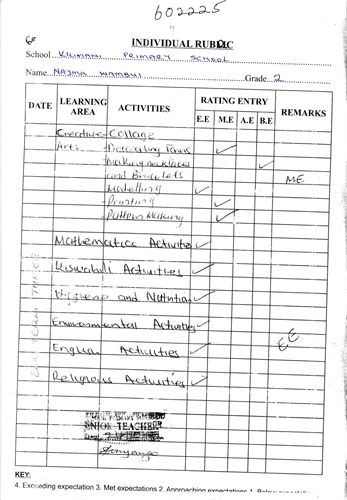 602225
INDIVIDUAL RUBRIC
School KILIMANI PRIMARY SCHOOL
Name NAJMA WAMBUI Grade 2
DATE LEARNING AREA ACTIVITIES RATING ENTRY REMARKS
E.E M.E A.E B.E
Creative Collage
Arts Decorating Forms
Making necklaces
and Bracelets ME
Modelling
Printing
Pattern Making
Mathematics Activities
Kiswahili Activities
Hygiene and Nutrition
Environmental Activities
English Activities EE
Religious Activities
SENIOR TEACHER
KEY:
4. Exceeding expectation 3. Met expectations 2. Approaching expectations 1. Below